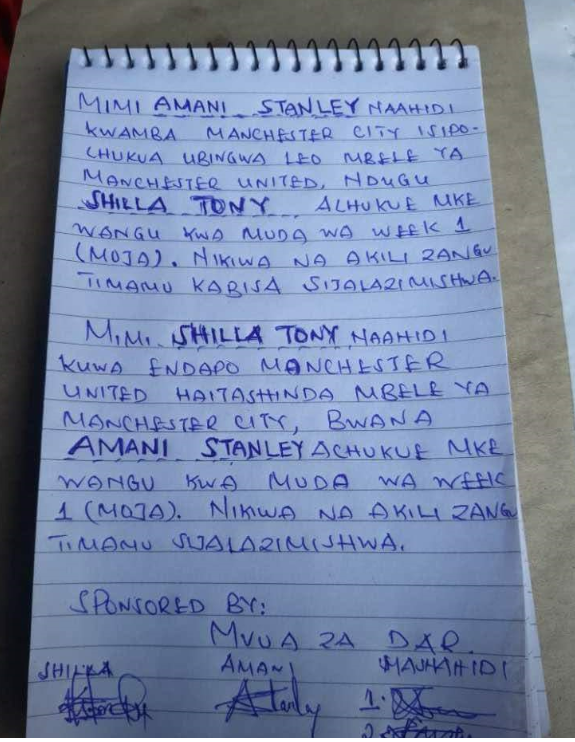 MIMI AMANI STANLEY NAAHIDI
KWAMBA MANCHESTER CITY ISIPO-
CHUKUA UBINGWA LEO MBELE YA
MANCHESTER UNITED, NDUGU
SHILLA TONY ACHUKUE MKE
WANGU KWA MUDA WA WEEK 1
(MOJA). NIKIWA NA AKILI ZANGU
TIMAMU KABISA SIJALAZIMISHWA.
MIMI SHILLA TONY NAAHIDI
KUWA ENDAPO MANCHESTER
UNITED HAITASHINDA MBELE YA
MANCHESTER CITY, BWANA
AMANI STANLEY ACHUKUE MKE
WANGU KWA MUDA WA WEEK
1 (MOJA). NIKIWA NA AKILI ZANGU
TIMAMU SIJALAZIMISHWA.
SPONSORED BY:
MVUA ZA DAR.
SHILLA AMANI MASHAHIDI
AStanley 1.
2.